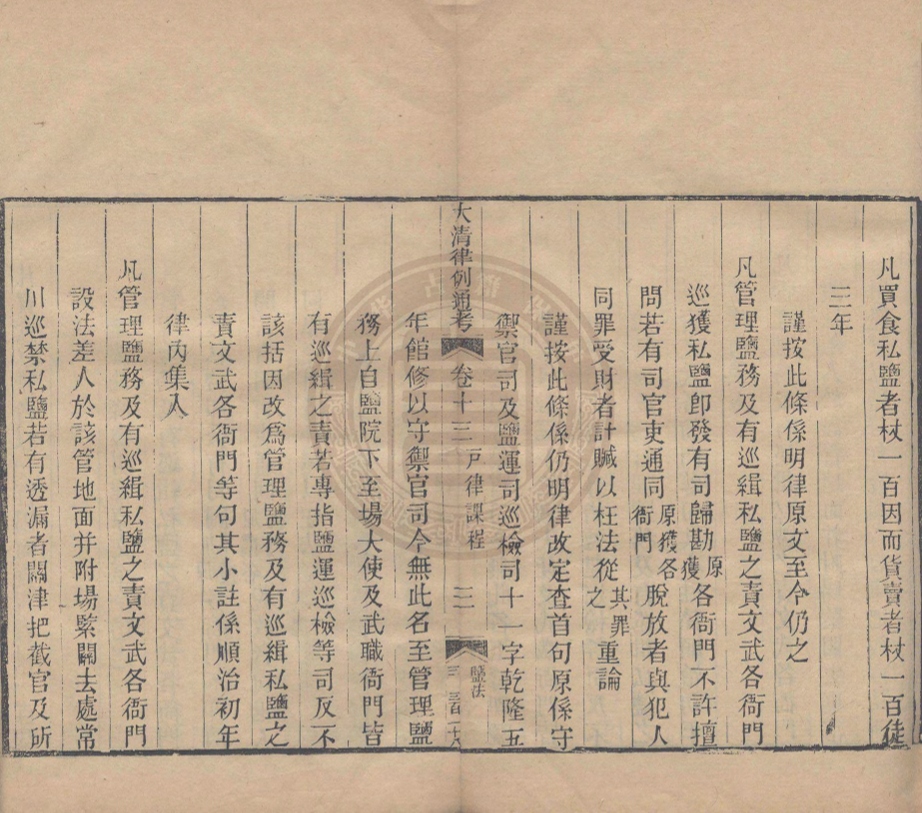 凡買食私鹽者杖一百因而貨賣者杖一百徒
三年
謹按此條係明律原文至今仍之
凡管理鹽務及有巡緝私鹽之責文武各衙門
巡獲私鹽即發有司歸勘原獲各衙門不許擅
問若有司官吏通同原獲各衙門脫放者與犯人
同罪受財者計贓以枉法從其罪之重論
謹按此條係仍明律改定查首句原係守
禦官司及鹽運司巡檢司十一字乾隆五
大清律例通考 卷十三 戸律課程 二 鹽法
年館修以守禦官司今無此名至管理鹽
務上自鹽院下至場大使及武職衙門皆
有巡緝之責若專指鹽運巡檢等司反不
該括因改爲管理鹽務及有巡緝私鹽之
責文武各衙門等句其小註係順治初年
律內集入
凡管理鹽務及有巡緝私鹽之責文武各衙門
設法差人於該管地面并附場緊關去處常
川巡禁私鹽若有透漏者關津把截官及所